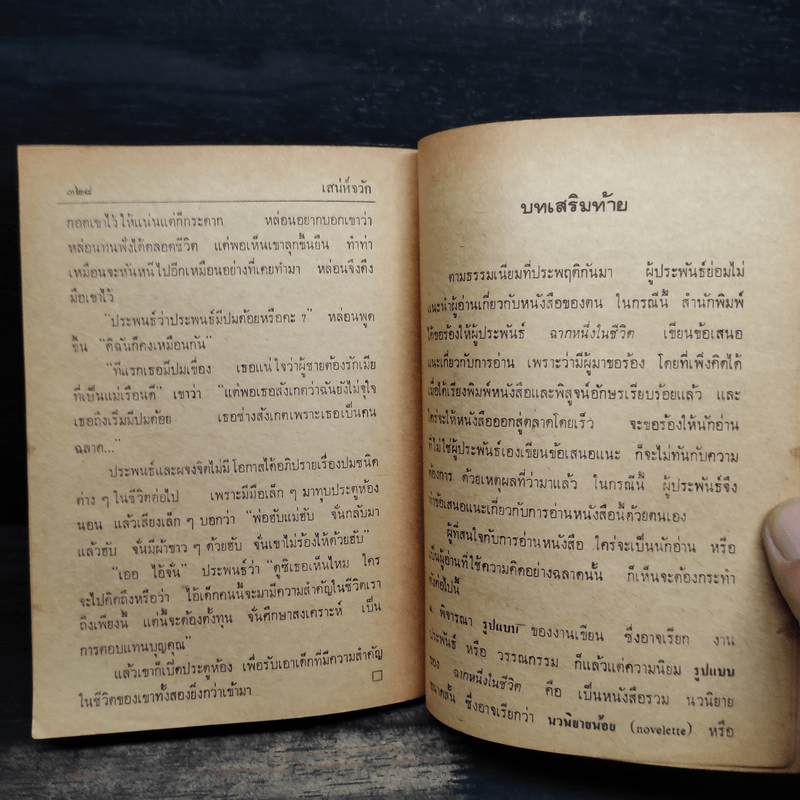 ๓๒๘ เสน่ห์จวัก
กอดเขาไว้ ให้แน่นแต่ก็กระดาก หล่อนอยากบอกเขาว่า
หล่อนทนฟังได้ตลอดชีวิต แต่พอเห็นเขาลุกขึ้นยืน ทำท่า
เหมือนจะหันหนีไปอีกเหมือนอย่างที่เคยทำมา หล่อนจึงดึง
มือเขาไว้
“ประพนธ์ว่าประพนธ์มีปมด้อยหรือคะ ?” หล่อนพูด
ขึ้น “ดิฉันก็คงเหมือนกัน”
“ทีแรกเธอมีปมเขื่อง เธอแน่ใจว่าผู้ชายต้องรักเมีย
ที่เป็นแม่เรือนดี” เขาว่า “แต่พอเธอสังเกตว่าฉันยังไม่จุใจ
เธอถึงเริ่มมีปมด้อย เธอช่างสังเกตเพราะเธอเป็นคน
ฉลาด...”
ประพนธ์และผจงจิตไม่มีโอกาสได้อภิปรายเรื่องปมชนิด
ต่าง ๆ ในชีวิตต่อไป เพราะมีมือเล็ก ๆ มาทุบประตูห้อง
นอน แล้วเสียงเล็ก ๆ บอกว่า “พ่อฮับแม่ฮับ จั่นกลับมา
แล้วฮับ จั่นมีผ้าขาว ๆ ด้วยฮับ จั่นเขาไม่ร้องไห้ด้วยฮับ”
“เออ ไอ้จั่น” ประพนธ์ว่า “ดูซิเธอเห็นไหม ใคร
จะไปคิดถึงหรือว่า ไอ้เด็กคนนี้จะมามีความสำคัญในชีวิตเรา
ถึงเพียงนี้ แต่นี้จะต้องตั้งทุน จั่นศึกษาสงเคราะห์ เป็น
การตอบแทนบุญคุณ”
แล้วเขาก็เปิดประตูห้อง เพื่อรับเอาเด็กที่มีความสำคัญ
ในชีวิตของเขาทั้งสองยิ่งกว่าเข้ามา
บทเสริมท้าย
ตามธรรมเนียมที่ประพฤติกันมา ผู้ประพันธ์ย่อมไม่
แนะนำผู้อ่านเกี่ยวกับหนังสือของตน ในกรณีนี้ สำนักพิมพ์
ได้ขอร้องให้ผู้ประพันธ์ ฉากหนึ่งในชีวิต เขียนข้อเสนอ
แนะเกี่ยวกับการอ่าน เพราะว่ามีผู้มาขอร้อง โดยที่เพิ่งคิดได้
เมื่อได้เรียงพิมพ์หนังสือและพิสูจน์อักษรเรียบร้อยแล้ว และ
ใคร่จะให้หนังสือออกสู่ตลาดโดยเร็ว จะขอร้องให้นักอ่าน
ที่ไม่ใช่ผู้ประพันธ์เองเขียนข้อเสนอแนะ ก็จะไม่ทันกับความ
ต้องการ ด้วยเหตุผลที่ว่ามาแล้ว ในกรณีนี้ ผู้ประพันธ์จึง
ทำข้อเสนอแนะเกี่ยวกับการอ่านหนังสือนี้ด้วยตนเอง
ผู้ที่สนใจกับการอ่านหนังสือ ใคร่จะเป็นนักอ่าน หรือ
เป็นผู้อ่านที่ใช้ความคิดอย่างฉลาดนั้น ก็เห็นจะต้องกระทำ
ดังต่อไปนี้
๑. พิจารณา รูปแบบ ของงานเขียน ซึ่งอาจเรียก งาน
ประพันธ์ หรือ วรรณกรรม ก็แล้วแต่ความนิยม รูปแบบ
ของ ฉากหนึ่งในชีวิต คือ เป็นหนังสือรวม นวนิยาย
ขนาดสั้น ซึ่งอาจเรียกว่า นวนิยายน้อย (novelette) หรือ